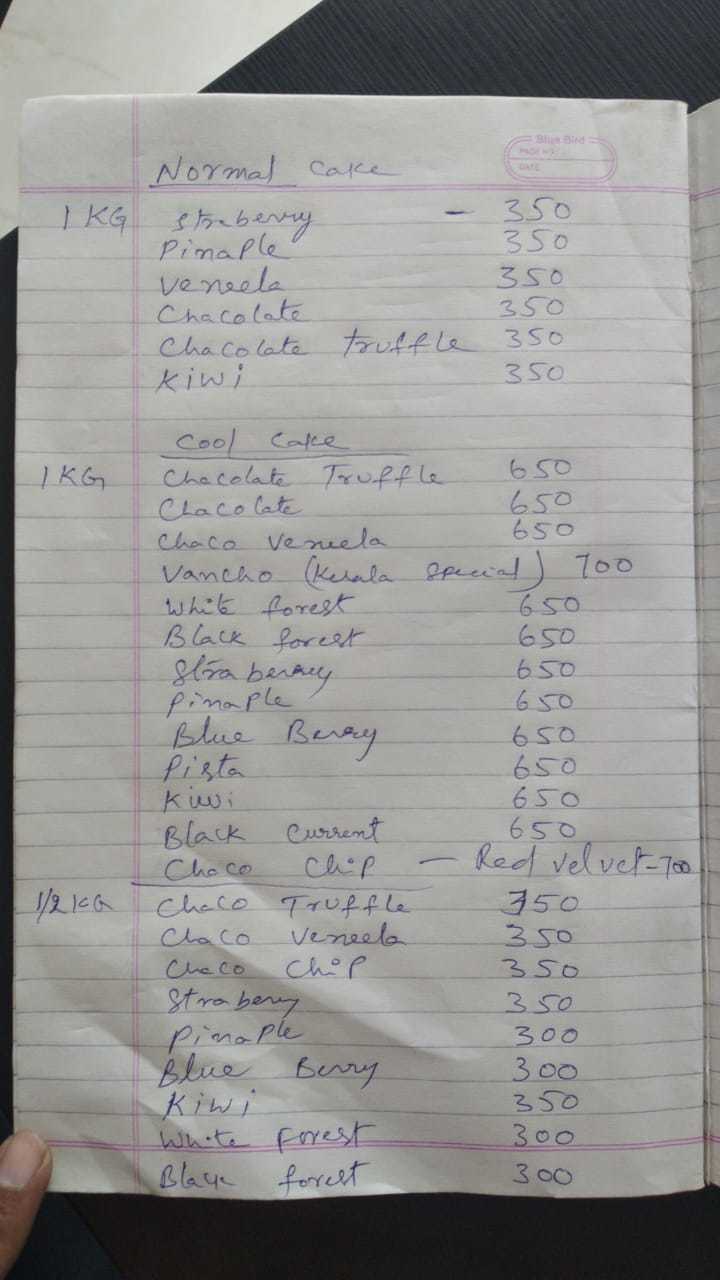 Blue Bird
PAGE NO.
DATE
Normal Cake
1 KG Straberry - 350
Pinaple 350
Veneela 350
Chacolate 350
Chacolate truffle 350
Kiwi 350
Cool Cake
1 KG Chacolate Truffle 650
Chacolate 650
Chaco Veneela 650
Vancho (Kerala Special) 700
White forest 650
Black forest 650
Straberry 650
Pinaple 650
Blue Berry 650
Pista 650
Kiwi 650
Black Current 650
Choco Chip - Red velvet-700
1/2 KG Choco Truffle 350
Choco Veneela 350
Choco Chip 350
Straberry 350
Pinaple 300
Blue Berry 300
Kiwi 350
White Forest 300
Black forest 300